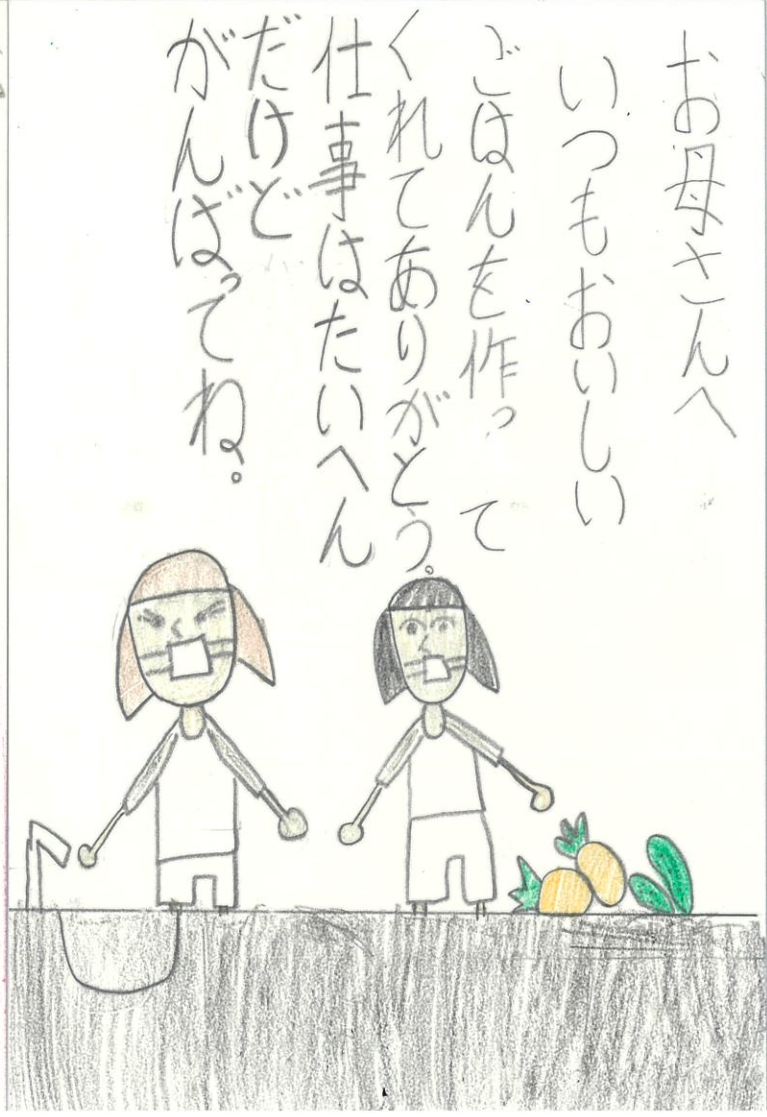 お母さんへ
いつもおいしい
ごはんを作って
くれてありがとう。
仕事はたいへん
だけど
がんばってね。